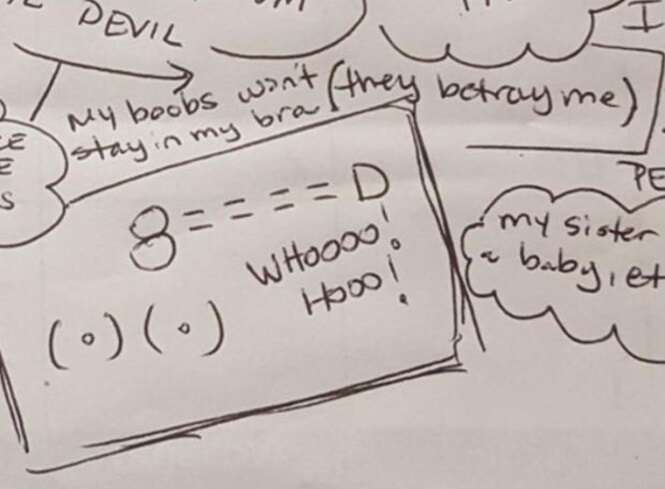 DEVIL
I
My boobs won't (they betray me)
stay in my bra
8====D
WHOOOO!
HOOO!
(o) (o)
E
S
PE
my sister
a baby, et